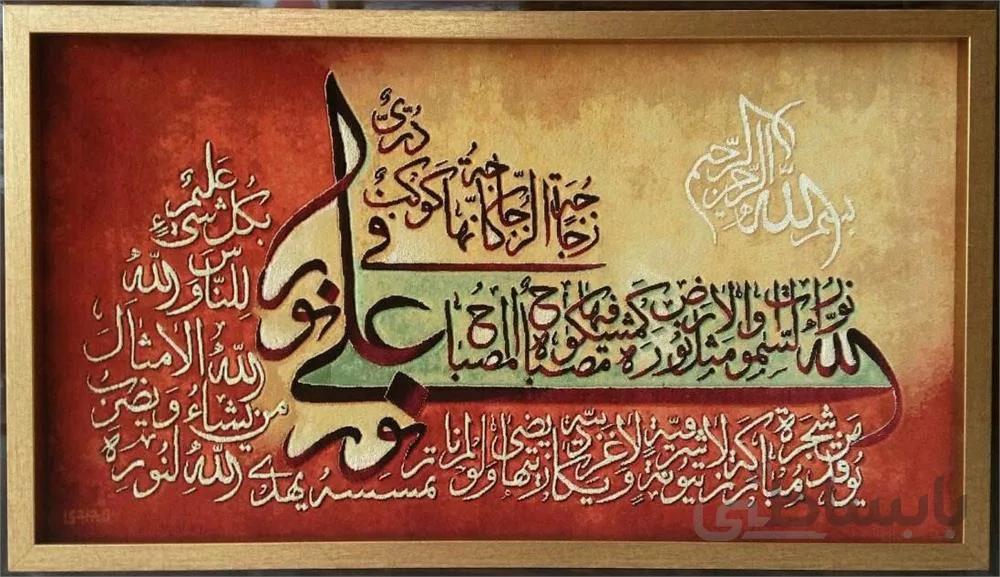 بسم الله الرحمن الرحيم
الله نور السموات والارض مثل نوره كمشكوة فيها مصباح المصباح
في زجاجة الزجاجة كانها كوكب
دري
يوقد من شجرة مباركة زيتونة لا شرقية ولا غربية يكاد زيتها يضيء ولو لم
تمسسه نار
نور على نور
يهدي الله لنوره
من يشاء ويضرب
الله الامثال
للناس والله
بكل شيء
عليم
بابساطی